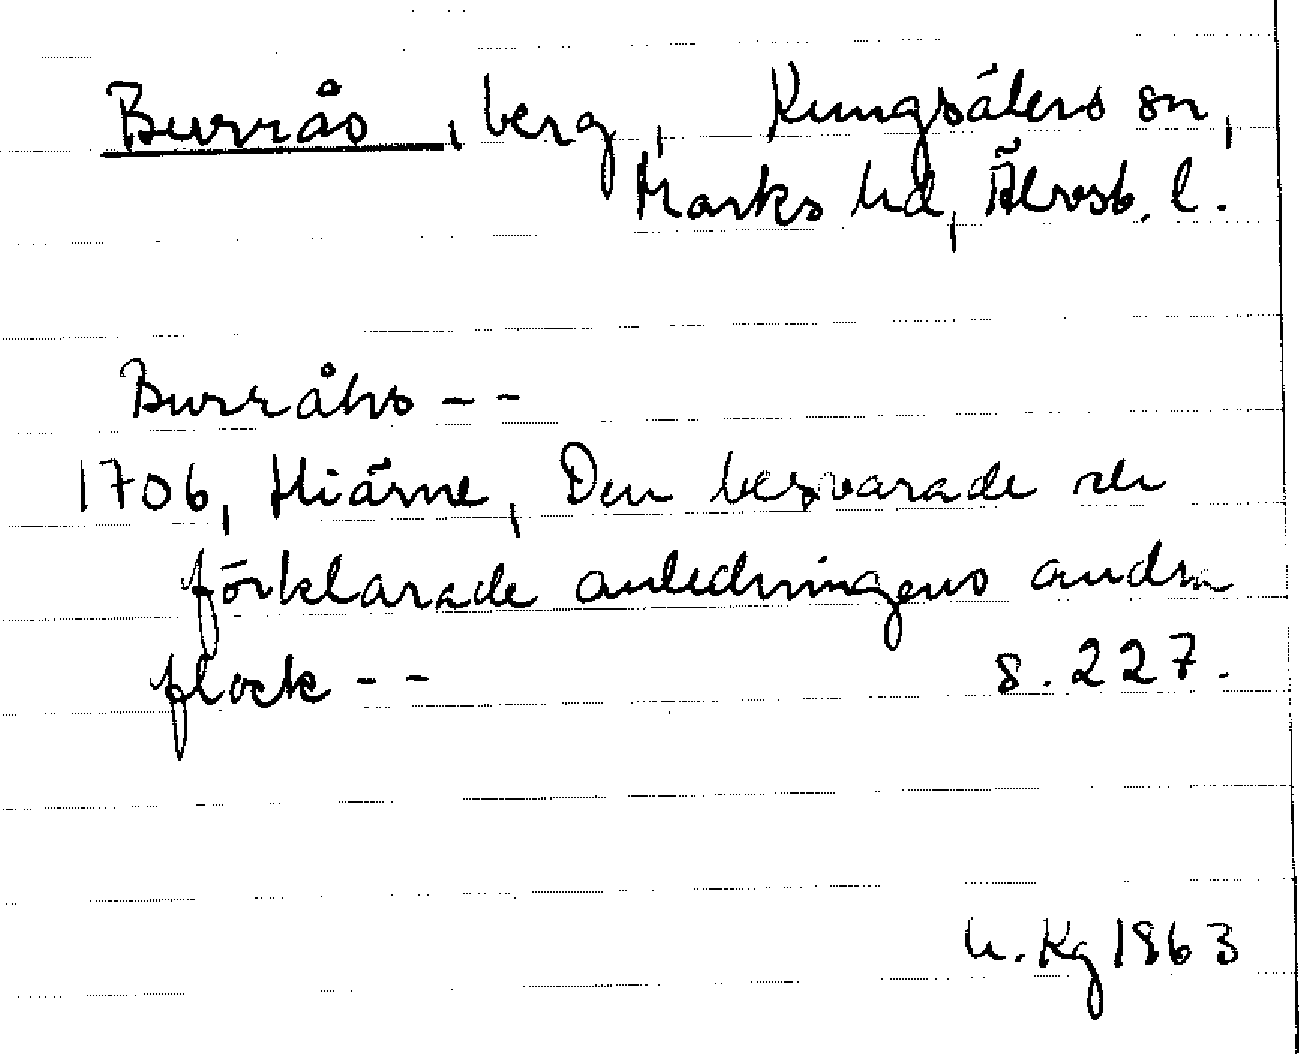 Burrås, berg, Kungsäters sn,
Marks hd, Älvsb. l.
Burråhs --
1706, Hiärne, Den besvarade och
förklarade anledningens andra
flock -- s. 227.
U. Kg 1963